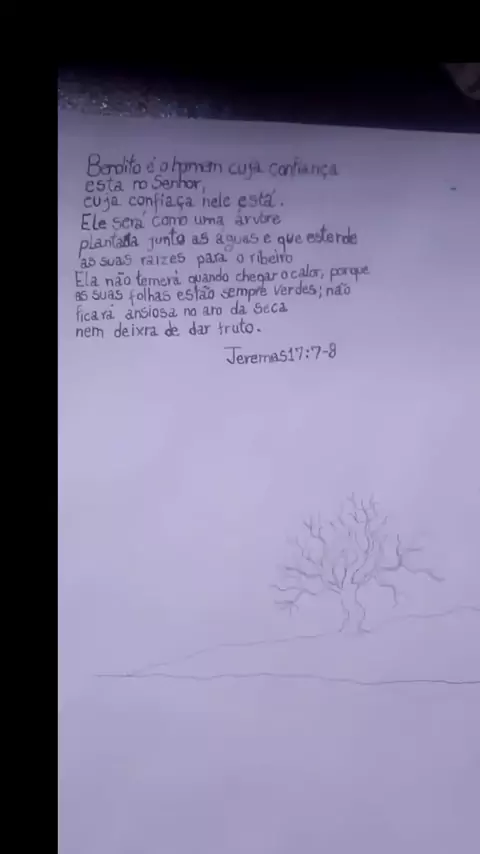 Bendito é o homem cuja confiança
esta no Senhor,
cuja confiaça nele está.
Ele será como uma árvore
plantada junto as águas e que estende
as suas raízes para o ribeiro
Ela não temerá quando chegar o calor, porque
as suas folhas estão sempre verdes; não
ficará ansiosa no aro da seca
nem deixra de dar truto.
Jeremas 17:7-8